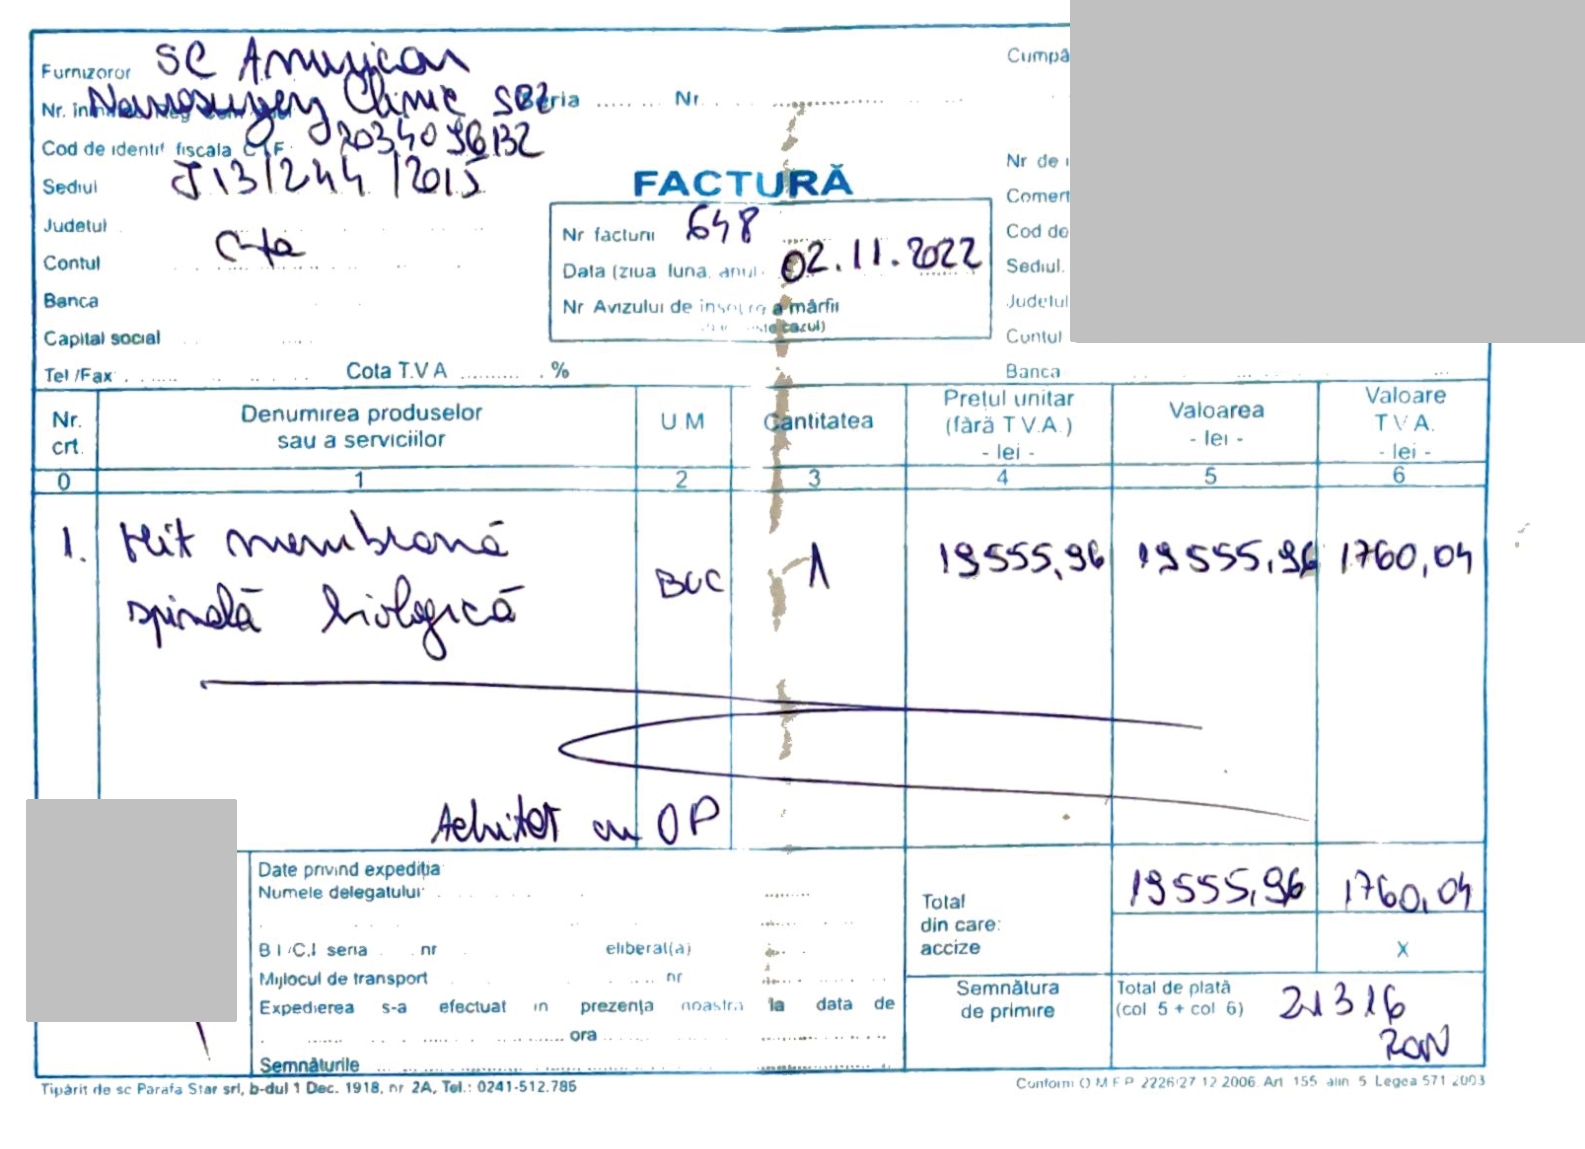 Furnizoror SC American
Nr. înmat. Reg Com Neurosurgery Clinic SRL
Seria ...... Nr.
Cod de identif fiscala CIF:
Sediul J13/244/2015
Judetul
Contul Cta
Banca
Capital social
Tel/Fax
Cota T.V.A. .......... %
FACTURĂ
Nr facturii 648
Data (ziua luna, anul 02.11.2022
Nr Avizului de însoțire a mărfii
(dacă este cazul)
Cumpă
Nr de
Comert
Cod de
Sediul.
Judetul
Contul
Banca
Nr. crt.
Denumirea produselor
sau a serviciilor
U M
Cantitatea
Prețul unitar
(fără T.V.A.)
- lei -
Valoarea
- lei -
Valoare
T.V.A.
- lei -
0 1 2 3 4 5 6
1. Kit membrană BUC 1 19555,96 19555,96 1760,04
spinală biologică
Achitat cu OP
Date privind expediția
Numele delegatului
B.I./C.I seria nr eliberat(a)
Mijlocul de transport nr
Expedierea s-a efectuat în prezența noastra la data de
ora
Semnăturile
Total 19555,96 1760,04
din care:
accize X
Semnătura
de primire
Total de plată 21316
(col 5 + col 6) RON
Tipărit de sc Parafa Star srl, b-dul 1 Dec. 1918, nr 2A, Tel.: 0241-512.785
Conform O M F P 2226/27 12 2006 Art 155 alin 5 Legea 571 2003